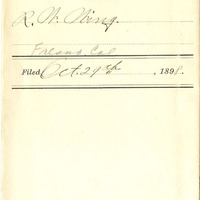 R. W. Wing.
Fresno, Cal
Filed Oct. 29th, 1898.